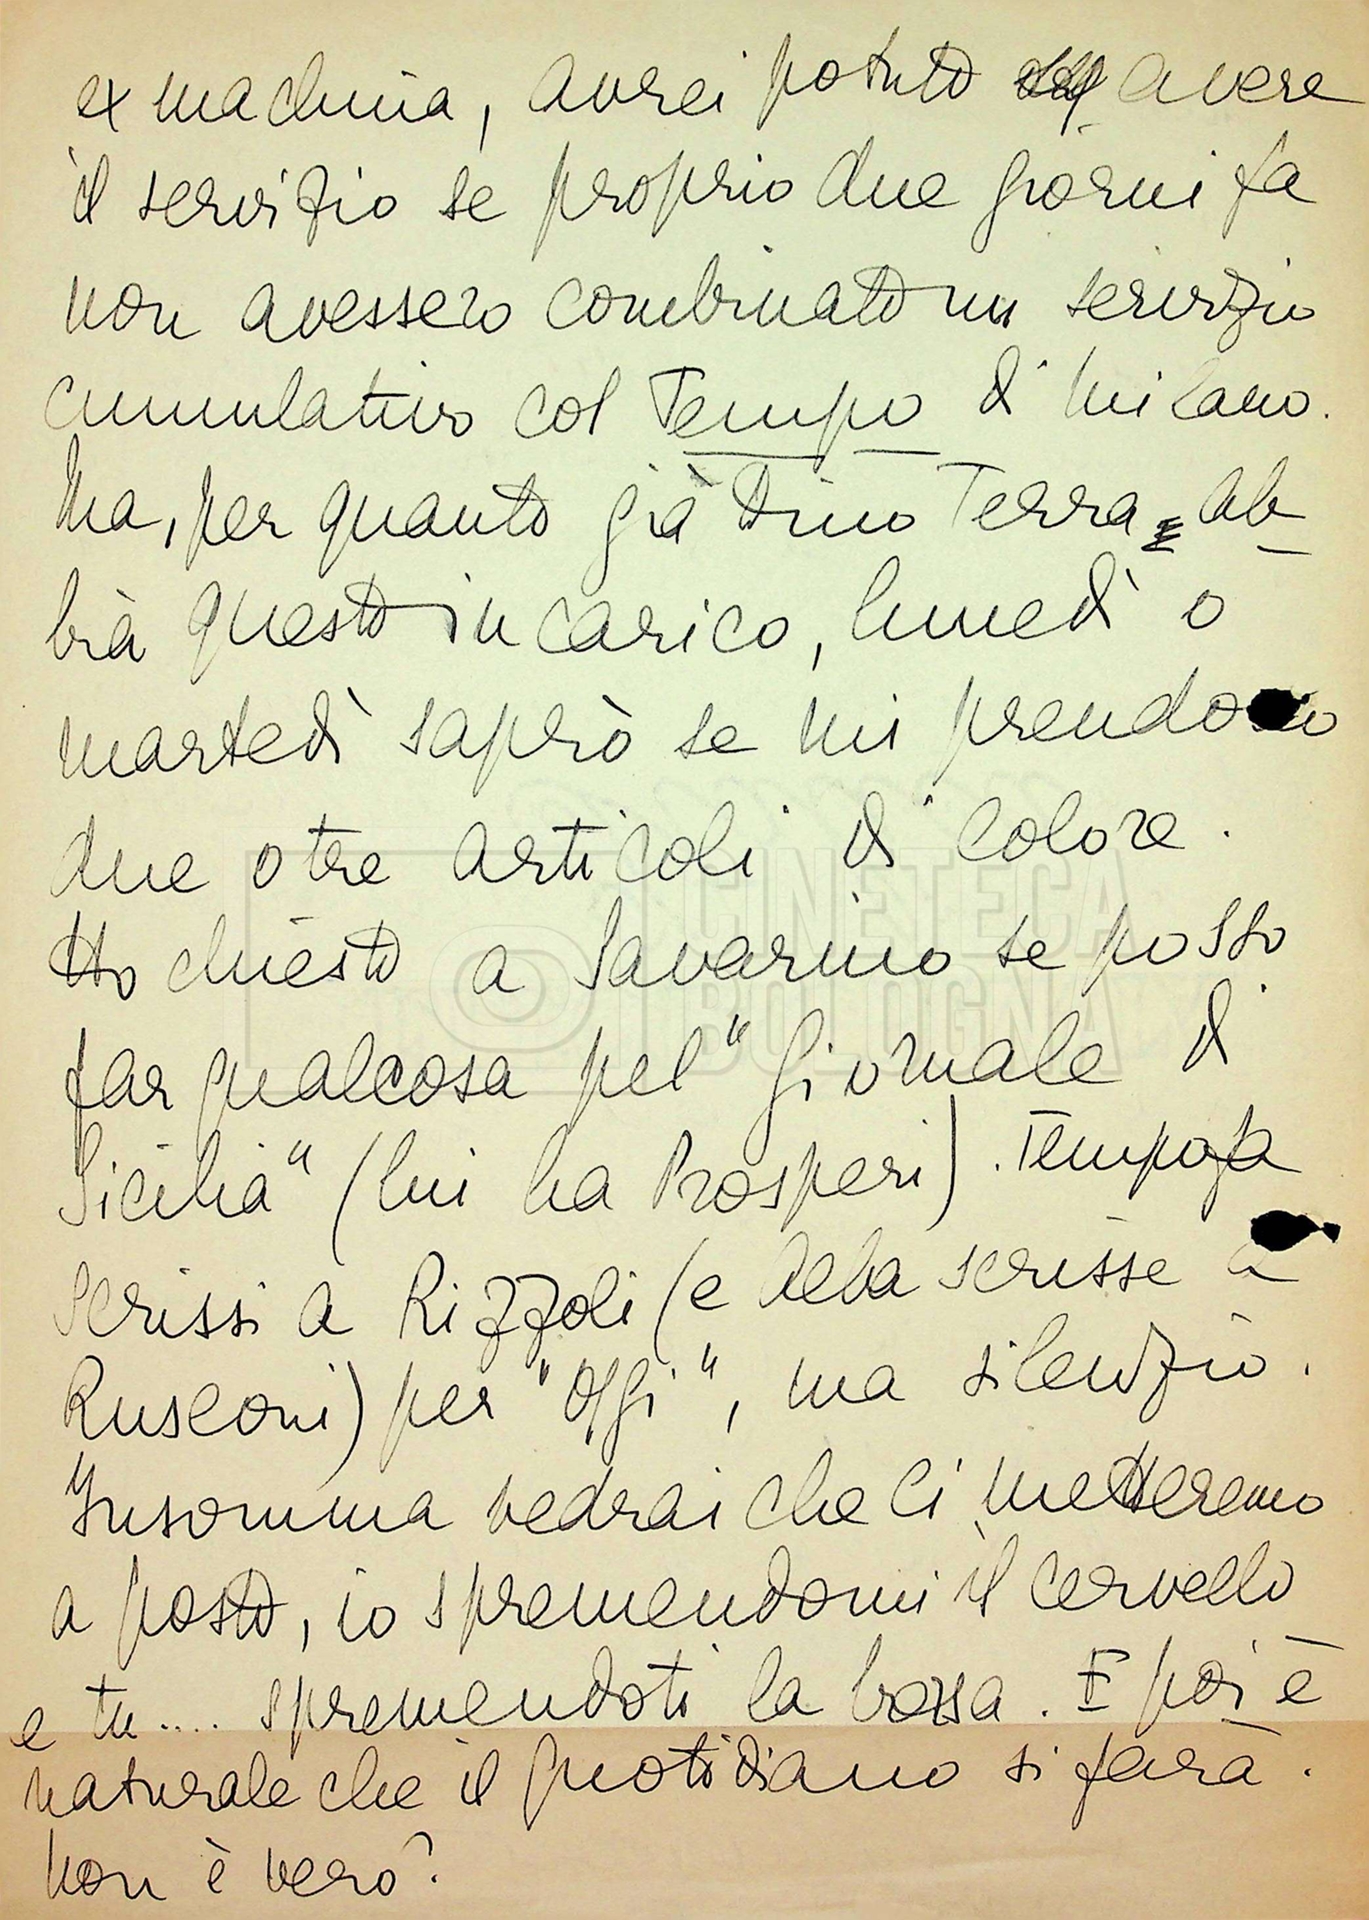 ex machina, avrei potuto avere
il servizio se proprio due giorni fa
non avessero combinato un servizio
cumulativo col Tempo di Milano.
Ma, per quanto già Dino Terra ab-
bia questo incarico, lunedì o
martedì saprò se mi prendono
due o tre articoli di colore.
Ho chiesto a Savarino se posso
far qualcosa pel "Giornale di
Sicilia" (lui ha Prosperi). Tempo fa
scrissi a Rizzoli (e Alba scrisse a
Rusconi) per "Oggi", ma silenzio.
Insomma vedrai che ci metteremo
a posto, io spremendomi il cervello
e tu.... spremendoti la borsa. E poi è
naturale che il quotidiano si farà.
Non è vero?
CINETECA
BOLOGNA